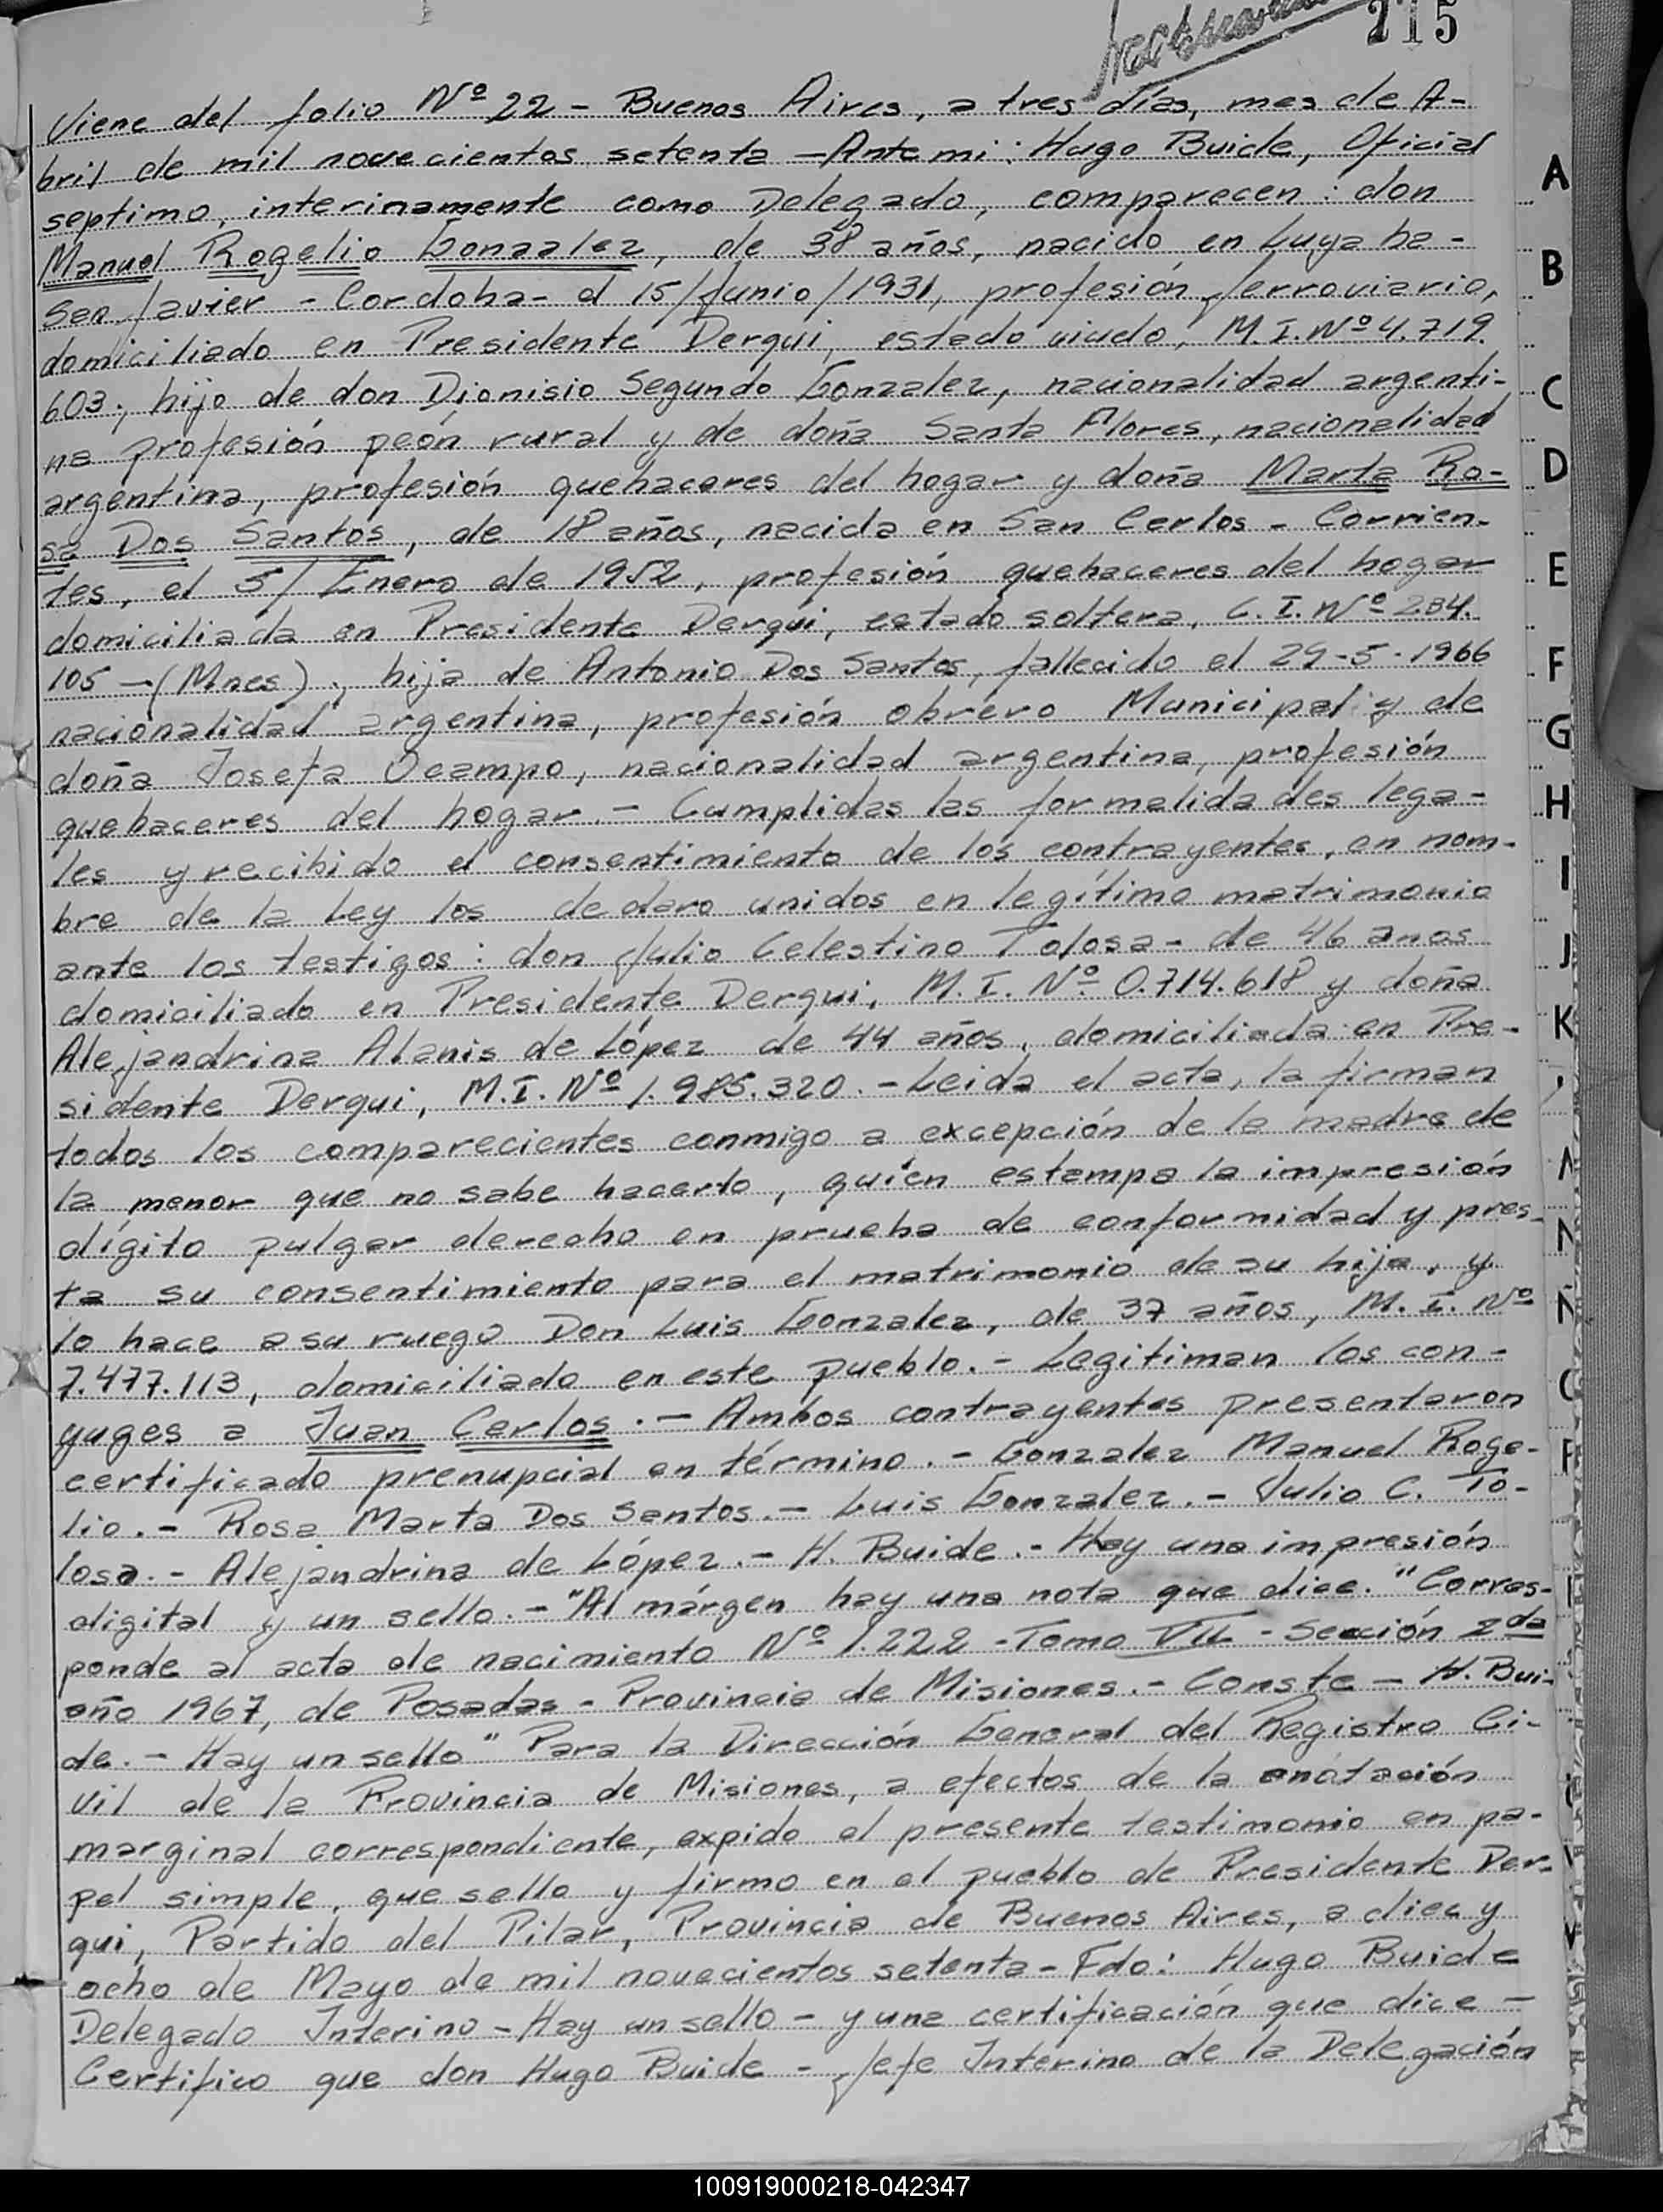 215
Viene del folio Nº 22 - Buenos Aires, a tres días, mes de A-
bril de mil novecientos setenta - Ante mi: Hugo Buide, Oficial
septimo, interinamente como Delegado, comparecen: don
Manuel Rogelio Gonzalez, de 38 años, nacido en Luyaba -
San Javier - Cordoba - el 15/Junio/1931, profesión ferroviario,
domiciliado en Presidente Derqui, estado viudo, M.I. Nº 4.719.
603; hijo de don Dionisio Segundo Gonzalez, nacionalidad argenti-
na profesión peón rural y de doña Santa Flores, nacionalidad
argentina, profesión quehaceres del hogar y doña Marta Ro-
sa Dos Santos, de 18 años, nacida en San Carlos - Corrien-
tes, el 5/ Enero de 1952, profesión quehaceres del hogar
domiciliada en Presidente Derqui, estado soltera, C.I. Nº 284.
105 - (Mnes); hija de Antonio Dos Santos, fallecido el 29-5-1966
nacionalidad argentina, profesión obrero Municipal y de
doña Josefa Ocampo, nacionalidad argentina, profesión
quehaceres del hogar. - Cumplidas las formalidades lega-
les y recibido el consentimiento de los contrayentes, en nom-
bre de la Ley los declaro unidos en legítimo matrimonio
ante los testigos: don Julio Celestino Tolosa - de 46 anos
domiciliado en Presidente Derqui, M.I. Nº 0.714.618 y doña
Alejandrina Alanis de López de 44 años, domiciliada en Pre-
sidente Derqui, M.I. Nº 1.985.320. - Leida el acta, la firman
todos los comparecientes conmigo a excepción de la madre de
la menor que no sabe hacerlo, quién estampa la impresión
dígito pulgar derecho en prueba de conformidad y pres-
ta su consentimiento para el matrimonio de su hija, y
lo hace a su ruego Don Luis Gonzalez, de 37 años, M.I. Nº
7.477.113, domiciliado en este pueblo. - Legitiman los con-
yuges a Juan Carlos. - Ambos contrayentes presentaron
certificado prenupcial en término. - Gonzalez Manuel Roge-
lio. - Rosa Marta Dos Santos. - Luis Gonzalez. - Julio C. To-
losa. - Alejandrina de López. - H. Buide. - Hay una impresión
digital y un sello. - "Al márgen hay una nota que dice. "Corres-
ponde al acta de nacimiento Nº 1.222 - Tomo VII - Sección 2da
año 1967, de Posadas - Provincia de Misiones. - Conste - H. Bui-
de. - Hay un sello" Para la Dirección General del Registro Ci-
vil de la Provincia de Misiones, a efectos de la anotación
marginal correspondiente, expido el presente testimonio en pa-
pel simple, que sello y firmo en el pueblo de Presidente Der-
qui, Partido del Pilar, Provincia de Buenos Aires, a diez y
ocho de Mayo de mil novecientos setenta - Fdo: Hugo Buide
Delegado Interino - Hay un sello - y una certificación que dice -
Certifico que don Hugo Buide - Jefe Interino de la Delegación
A
B
C
D
E
F
G
H
I
J
K
N
Ñ
100919000218-042347